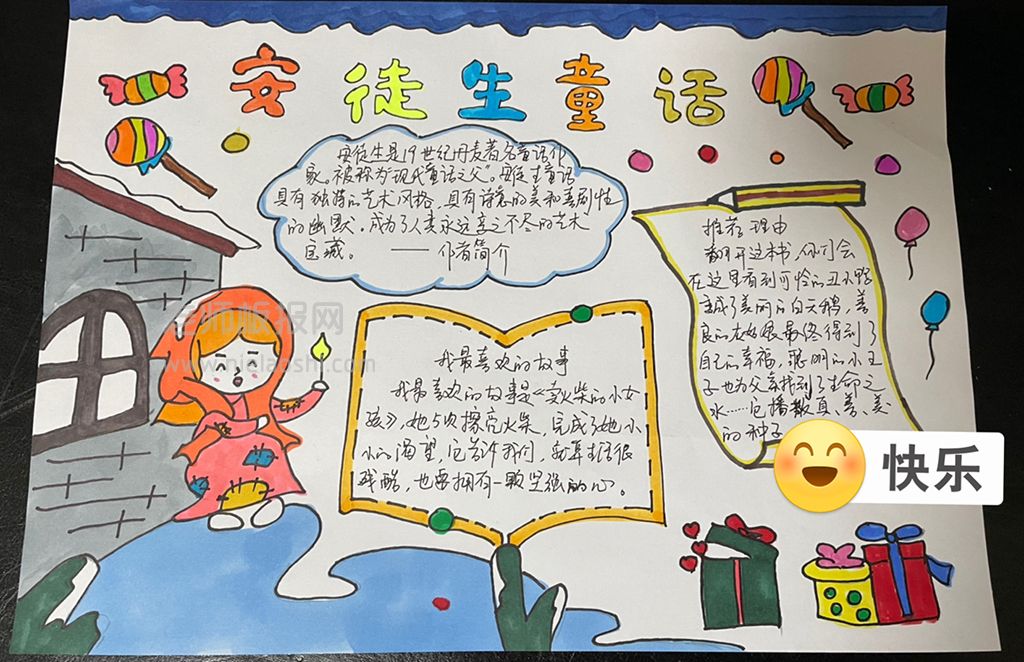 安徒生童话
安徒生是19世纪丹麦著名童话作
家。被称为“现代童话之父”。安徒生童话
具有独特的艺术风格，具有诗意的美和喜剧性
的幽默，成为了人类永远享之不尽的艺术
宝藏。
——作者简介
推荐理由
翻开这本书，你可会
在这里看到可怜的丑小鸭
变成了美丽的白天鹅，善
良的拇指姑娘最终得到了
自己的幸福，聪明的小王
子也为父亲找到了生命之
水……它播散真、善、美
的种子
我最喜欢的故事
我最喜欢的故事是《卖火柴的小女
孩》，她5次擦亮火柴，完成了她小
小的渴望，它告诉我们，就算生活很
残酷，也要拥有一颗坚强的心。
老师板报网
快乐